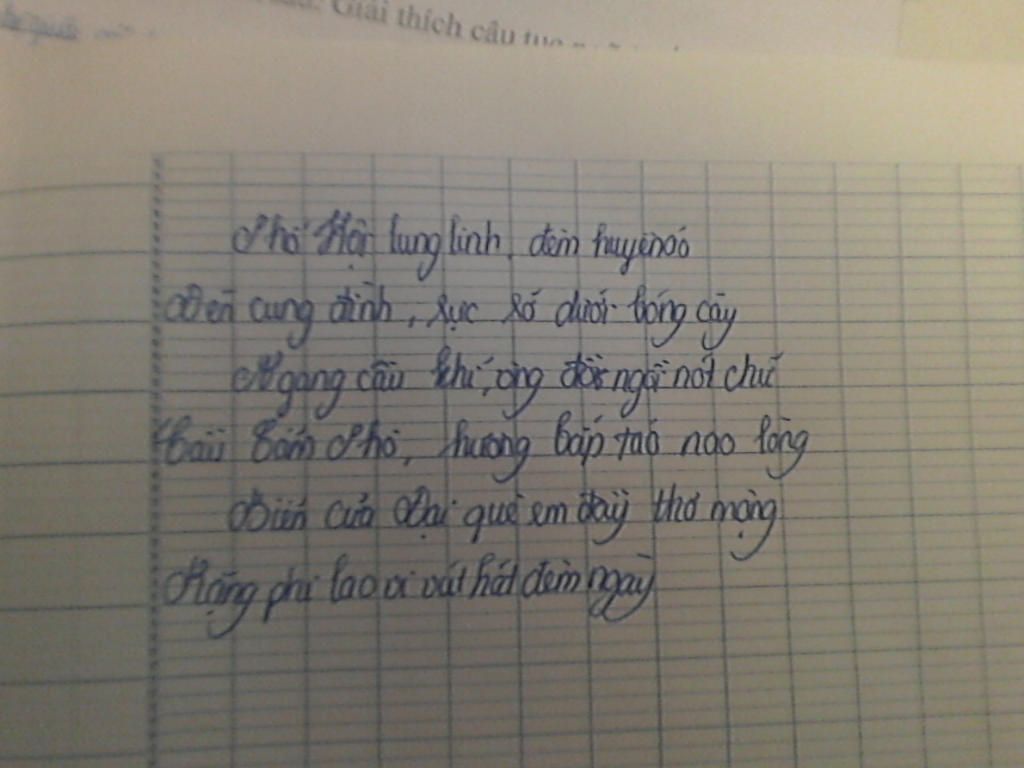 Giải thích câu tục
Phố Hội lung linh, đêm huyền ảo
Đèn cung đình, rực rỡ dưới bóng cây
Ngang cầu khỉ, ông đồ ngồi nốt chữ
Bãi Cẩm Phô, hương bắp toả nao lòng
Biển cửa Đại quê em đầy thơ mộng
Hàng phi lao vi vút hát đêm ngày